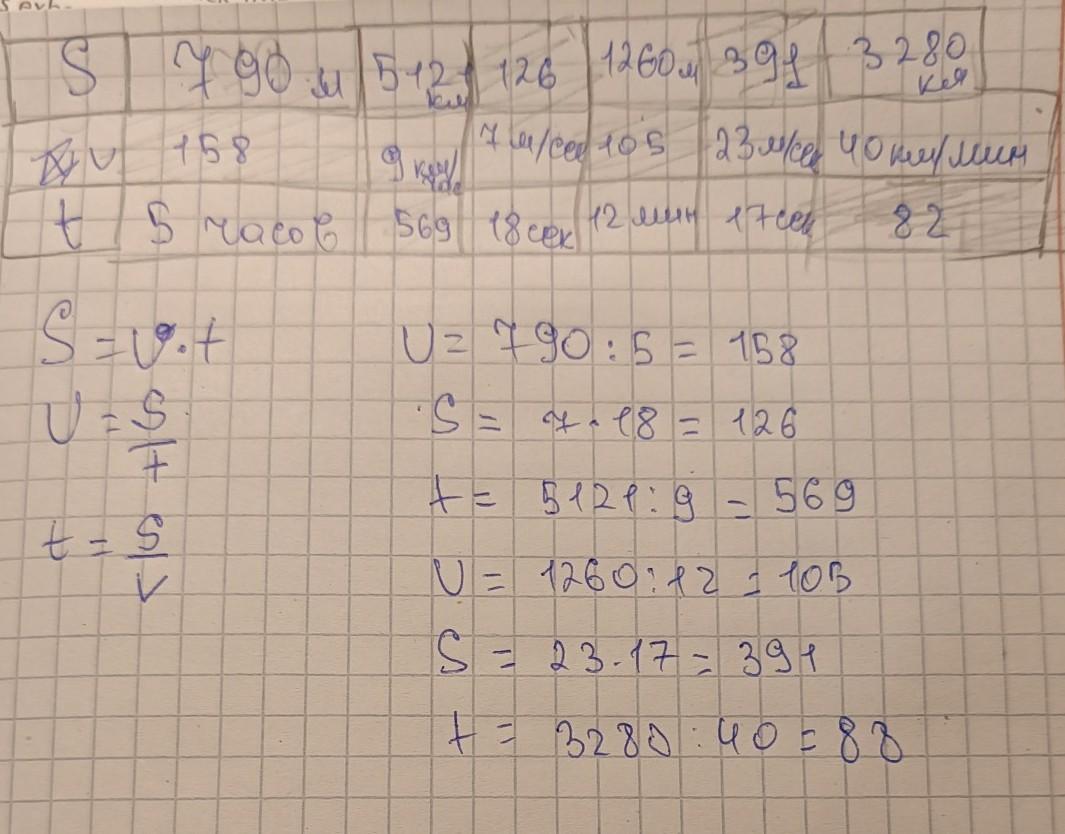 S 790 м 5121 км 126 1260 м 391 3280 км
v 158 9 км/ч 7 м/сек 105 23 м/сек 40 км/мин
t 5 часов 569 18 сек 12 мин 17 сек 82
S = v · t
v = 790 : 5 = 158
v = S/t
S = 7 · 18 = 126
t = 5121 : 9 = 569
t = S/v
v = 1260 : 12 = 105
S = 23 · 17 = 391
t = 3280 : 40 = 88